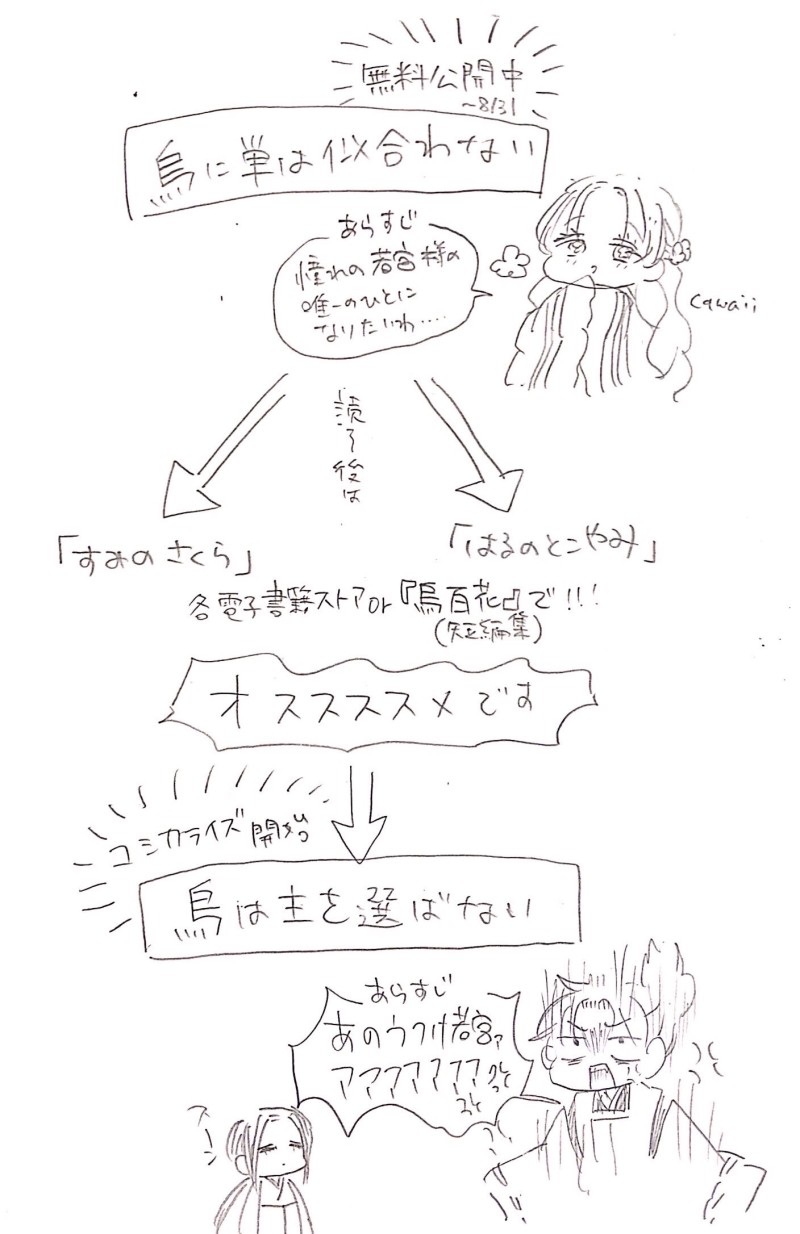 無料公開中
~8/31
烏に単は似合わない
あらすじ
憧れの若宮様の
唯一のひとに
なりたいわ……
cawaii
読了後は
「すみのさくら」
「はるのとこやみ」
各電子書籍ストアor『烏百花』で!!!
(短編集)
オススススメです
コミカライズ開始
烏は主を選ばない
あらすじ
あのうつけ若宮ァ
アアアアアアア
スーン